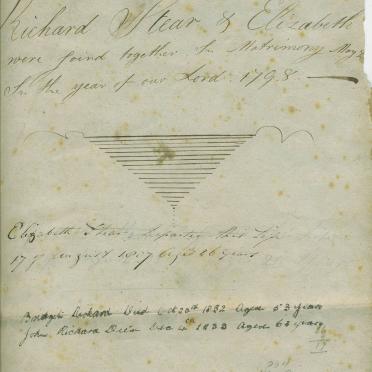 Richard Stear & Elizabeth
were joind together in Matrimony May
In the year of our Lord 1798
Elizabeth Departed this Life
17 of August 1857 Aged 86 years
Richard Died Oct 20th 1832 Aged 53 years
John Richard Died Dec 1833 Aged 63 years